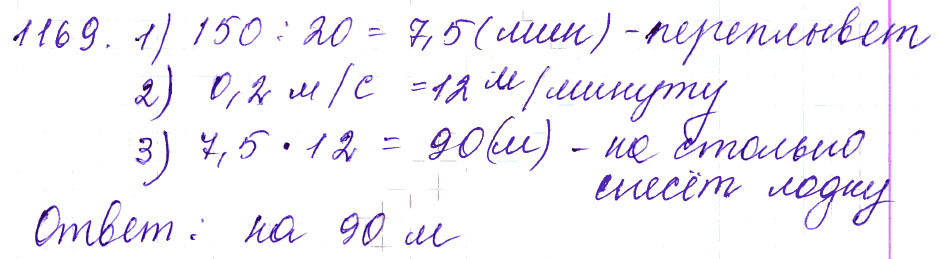 1169. 1) 150 : 20 = 7,5 (мин) - переплывет
2) 0,2 м/с = 12 м/минуту
3) 7,5 · 12 = 90 (м) - на столько
снесёт лодку
Ответ: на 90 м